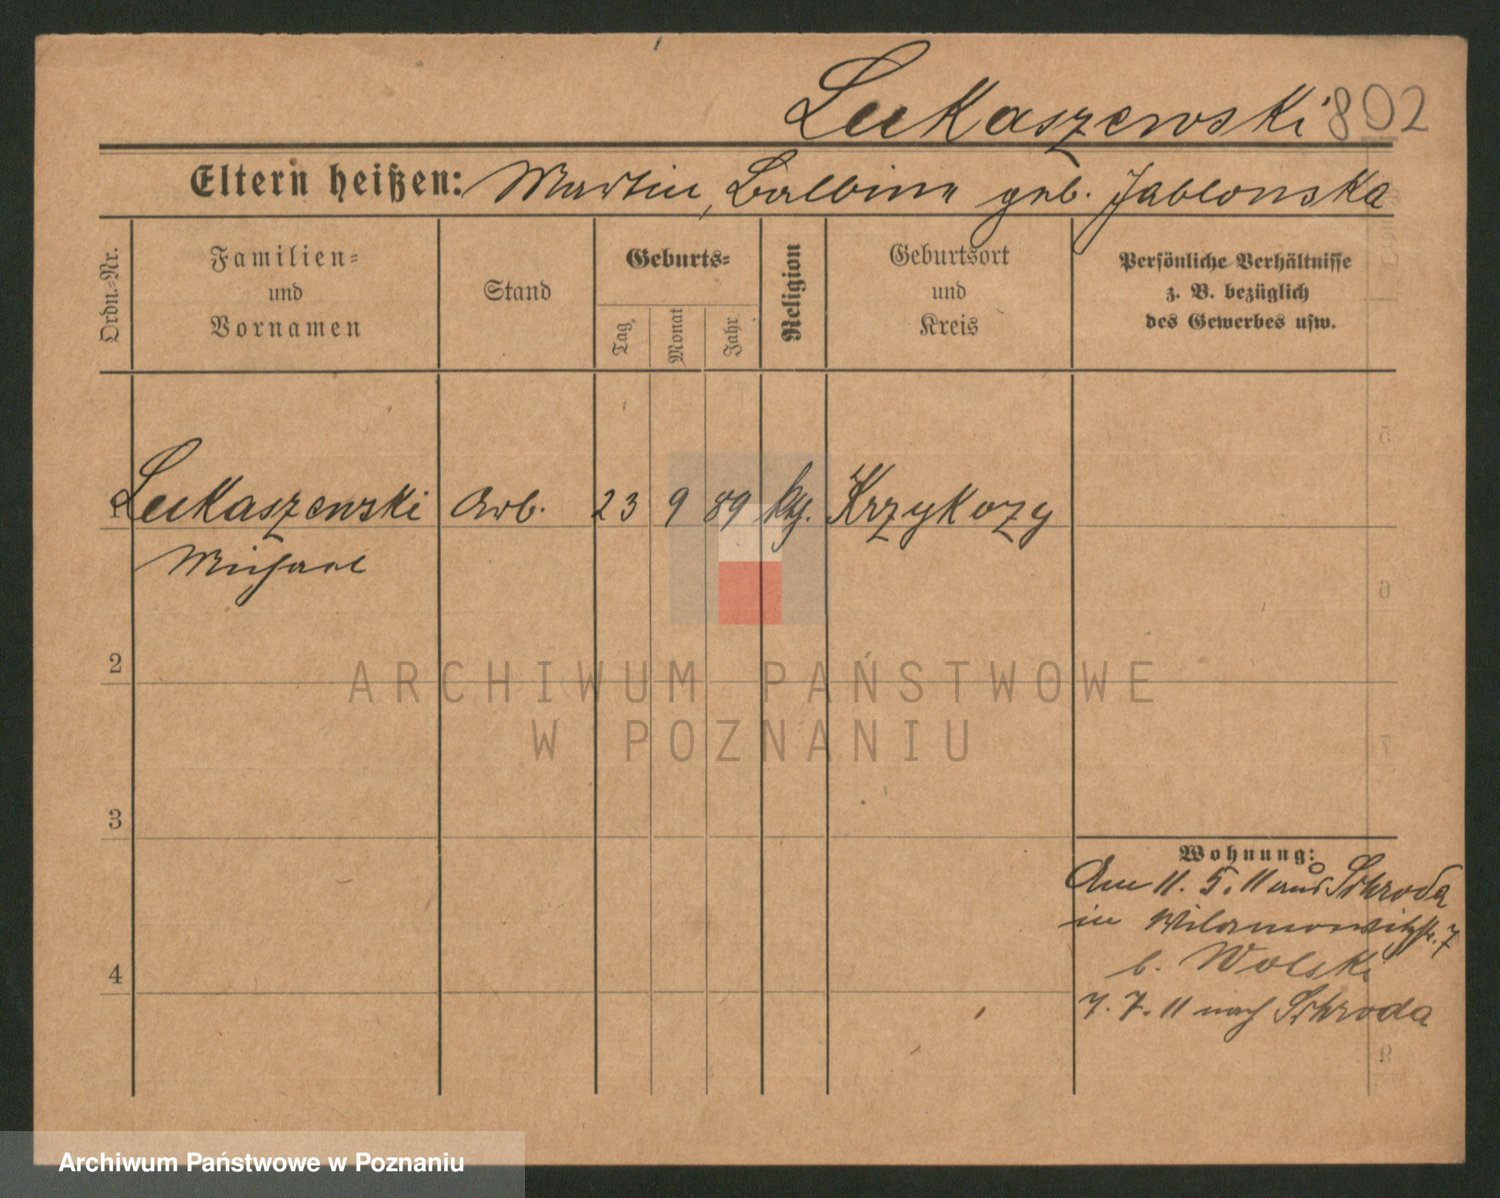 Lukaszewski 802
Eltern heißen: Martin, Balbina geb. Jablonska
Ordn.-Nr.
Familien-
und
Vornamen
Stand
Geburts-
Tag
Monat
Jahr
Religion
Geburtsort
und
Kreis
Persönliche Verhältnisse
z. B. bezüglich
des Gewerbes usw.
1 Lukaszewski Arb. 23 9 89 kg. Krzykozy
Michael
2
3
4
Wohnung:
Am 11. 5. 11 aus Schroda
in Wilamowitzstr. 7
b. Wolski
7. 7. 11 nach Schroda
5
6
7
ARCHIWUM PAŃSTWOWE
W POZNANIU
Archiwum Państwowe w Poznaniu